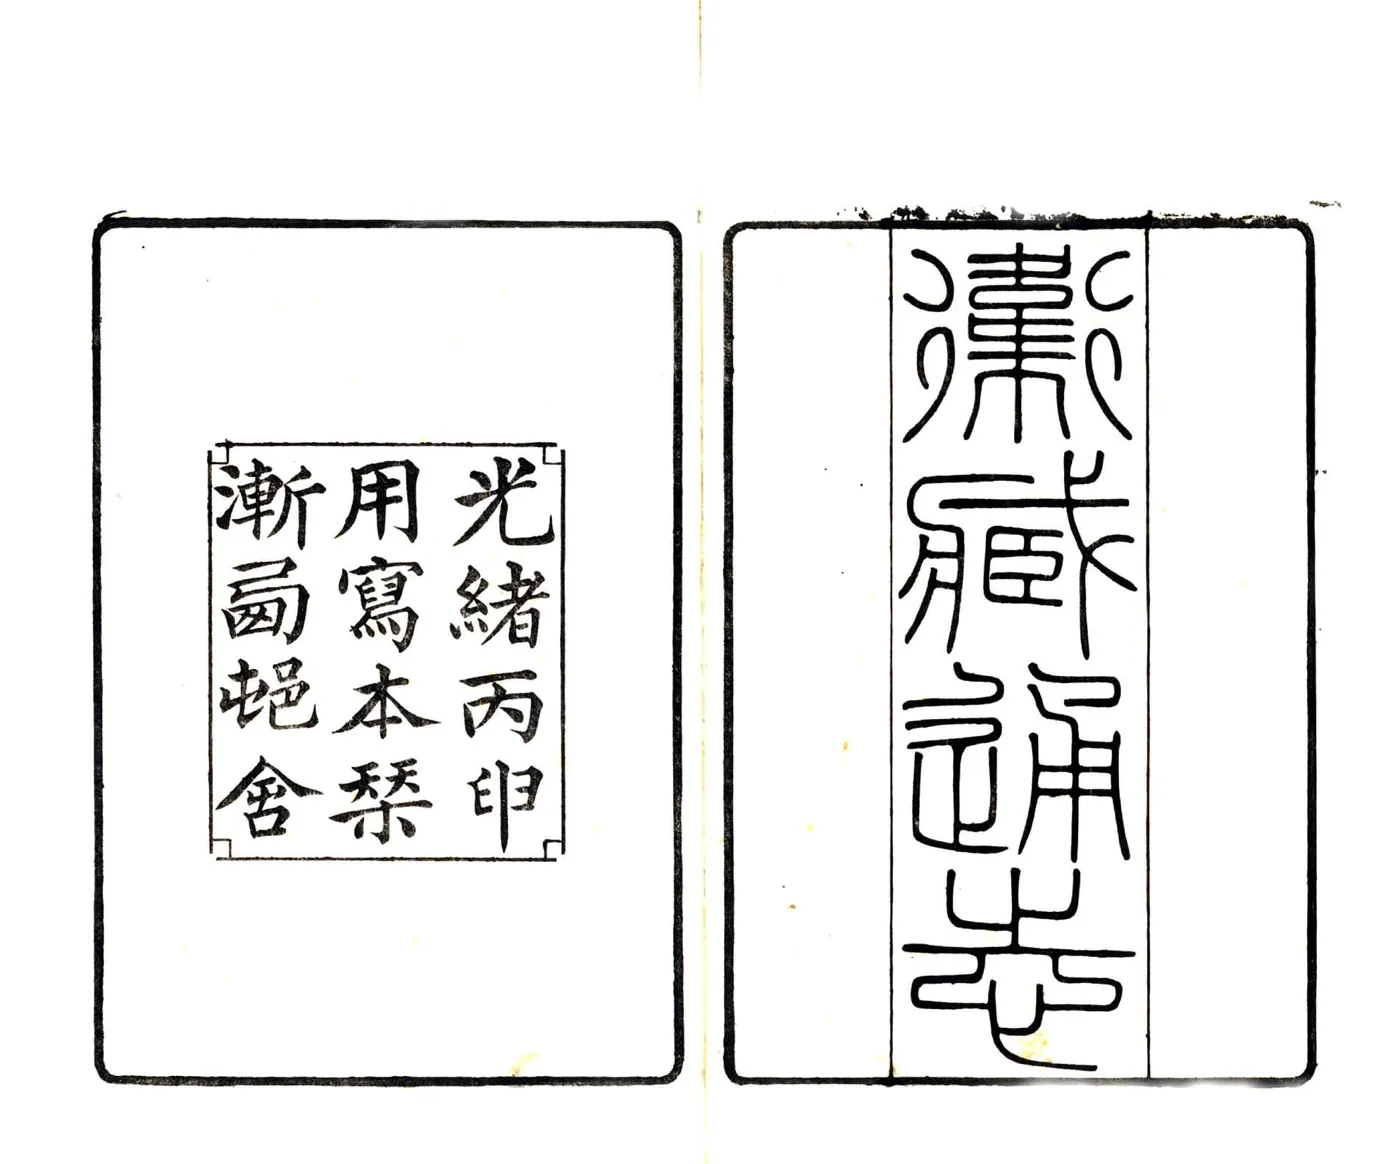 衞藏通志
光緒丙申
用寫本栞
漸㢴邨舍